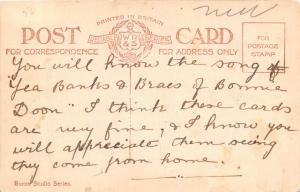 PRINTED IN BRITAIN
POST CARD
FOR CORRESPONDENCE
FOR ADDRESS ONLY
FOR
POSTAGE
STAMP
You will know the song
"Yea Banks & Braes of Bonnie
Doon" I think these cards
are very fine, & I know you
will appreciate them seeing
they come from home.
Burns Studio Series.